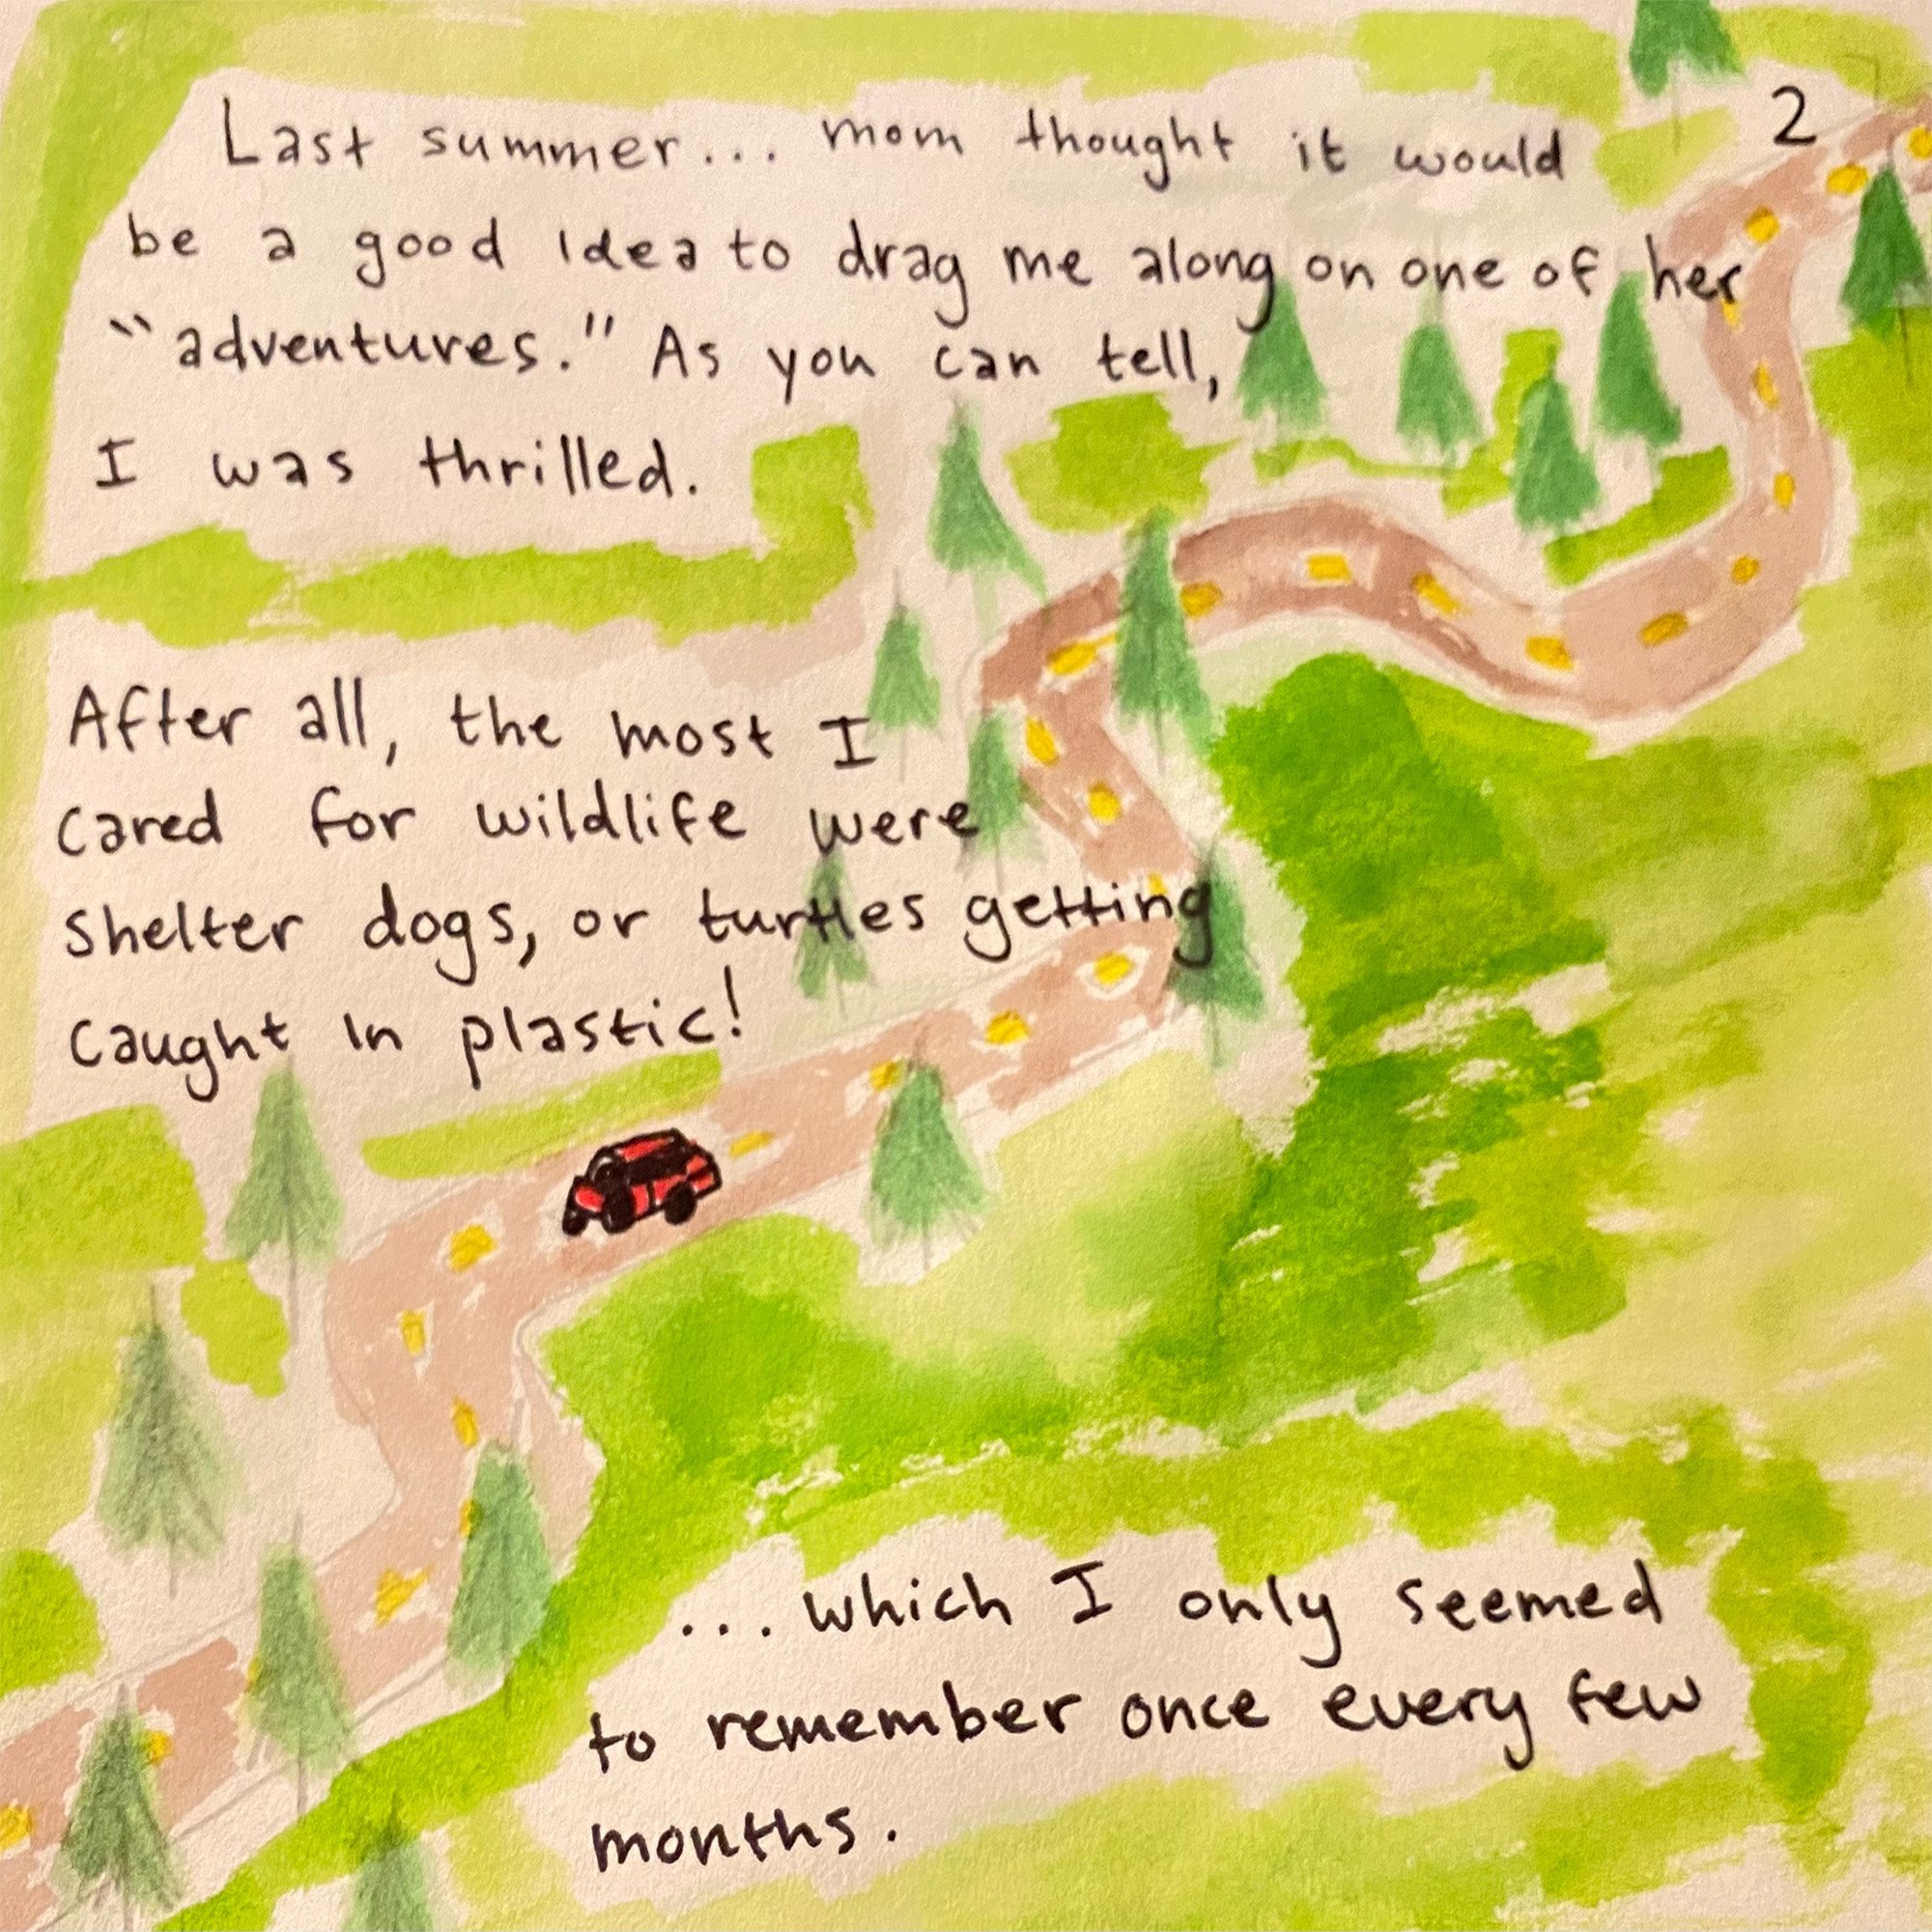 2
Last summer... mom thought it would
be a good idea to drag me along on one of her
"adventures." As you can tell,
I was thrilled.
After all, the most I
cared for wildlife were
shelter dogs, or turtles getting
caught in plastic!
...which I only seemed
to remember once every few
months.